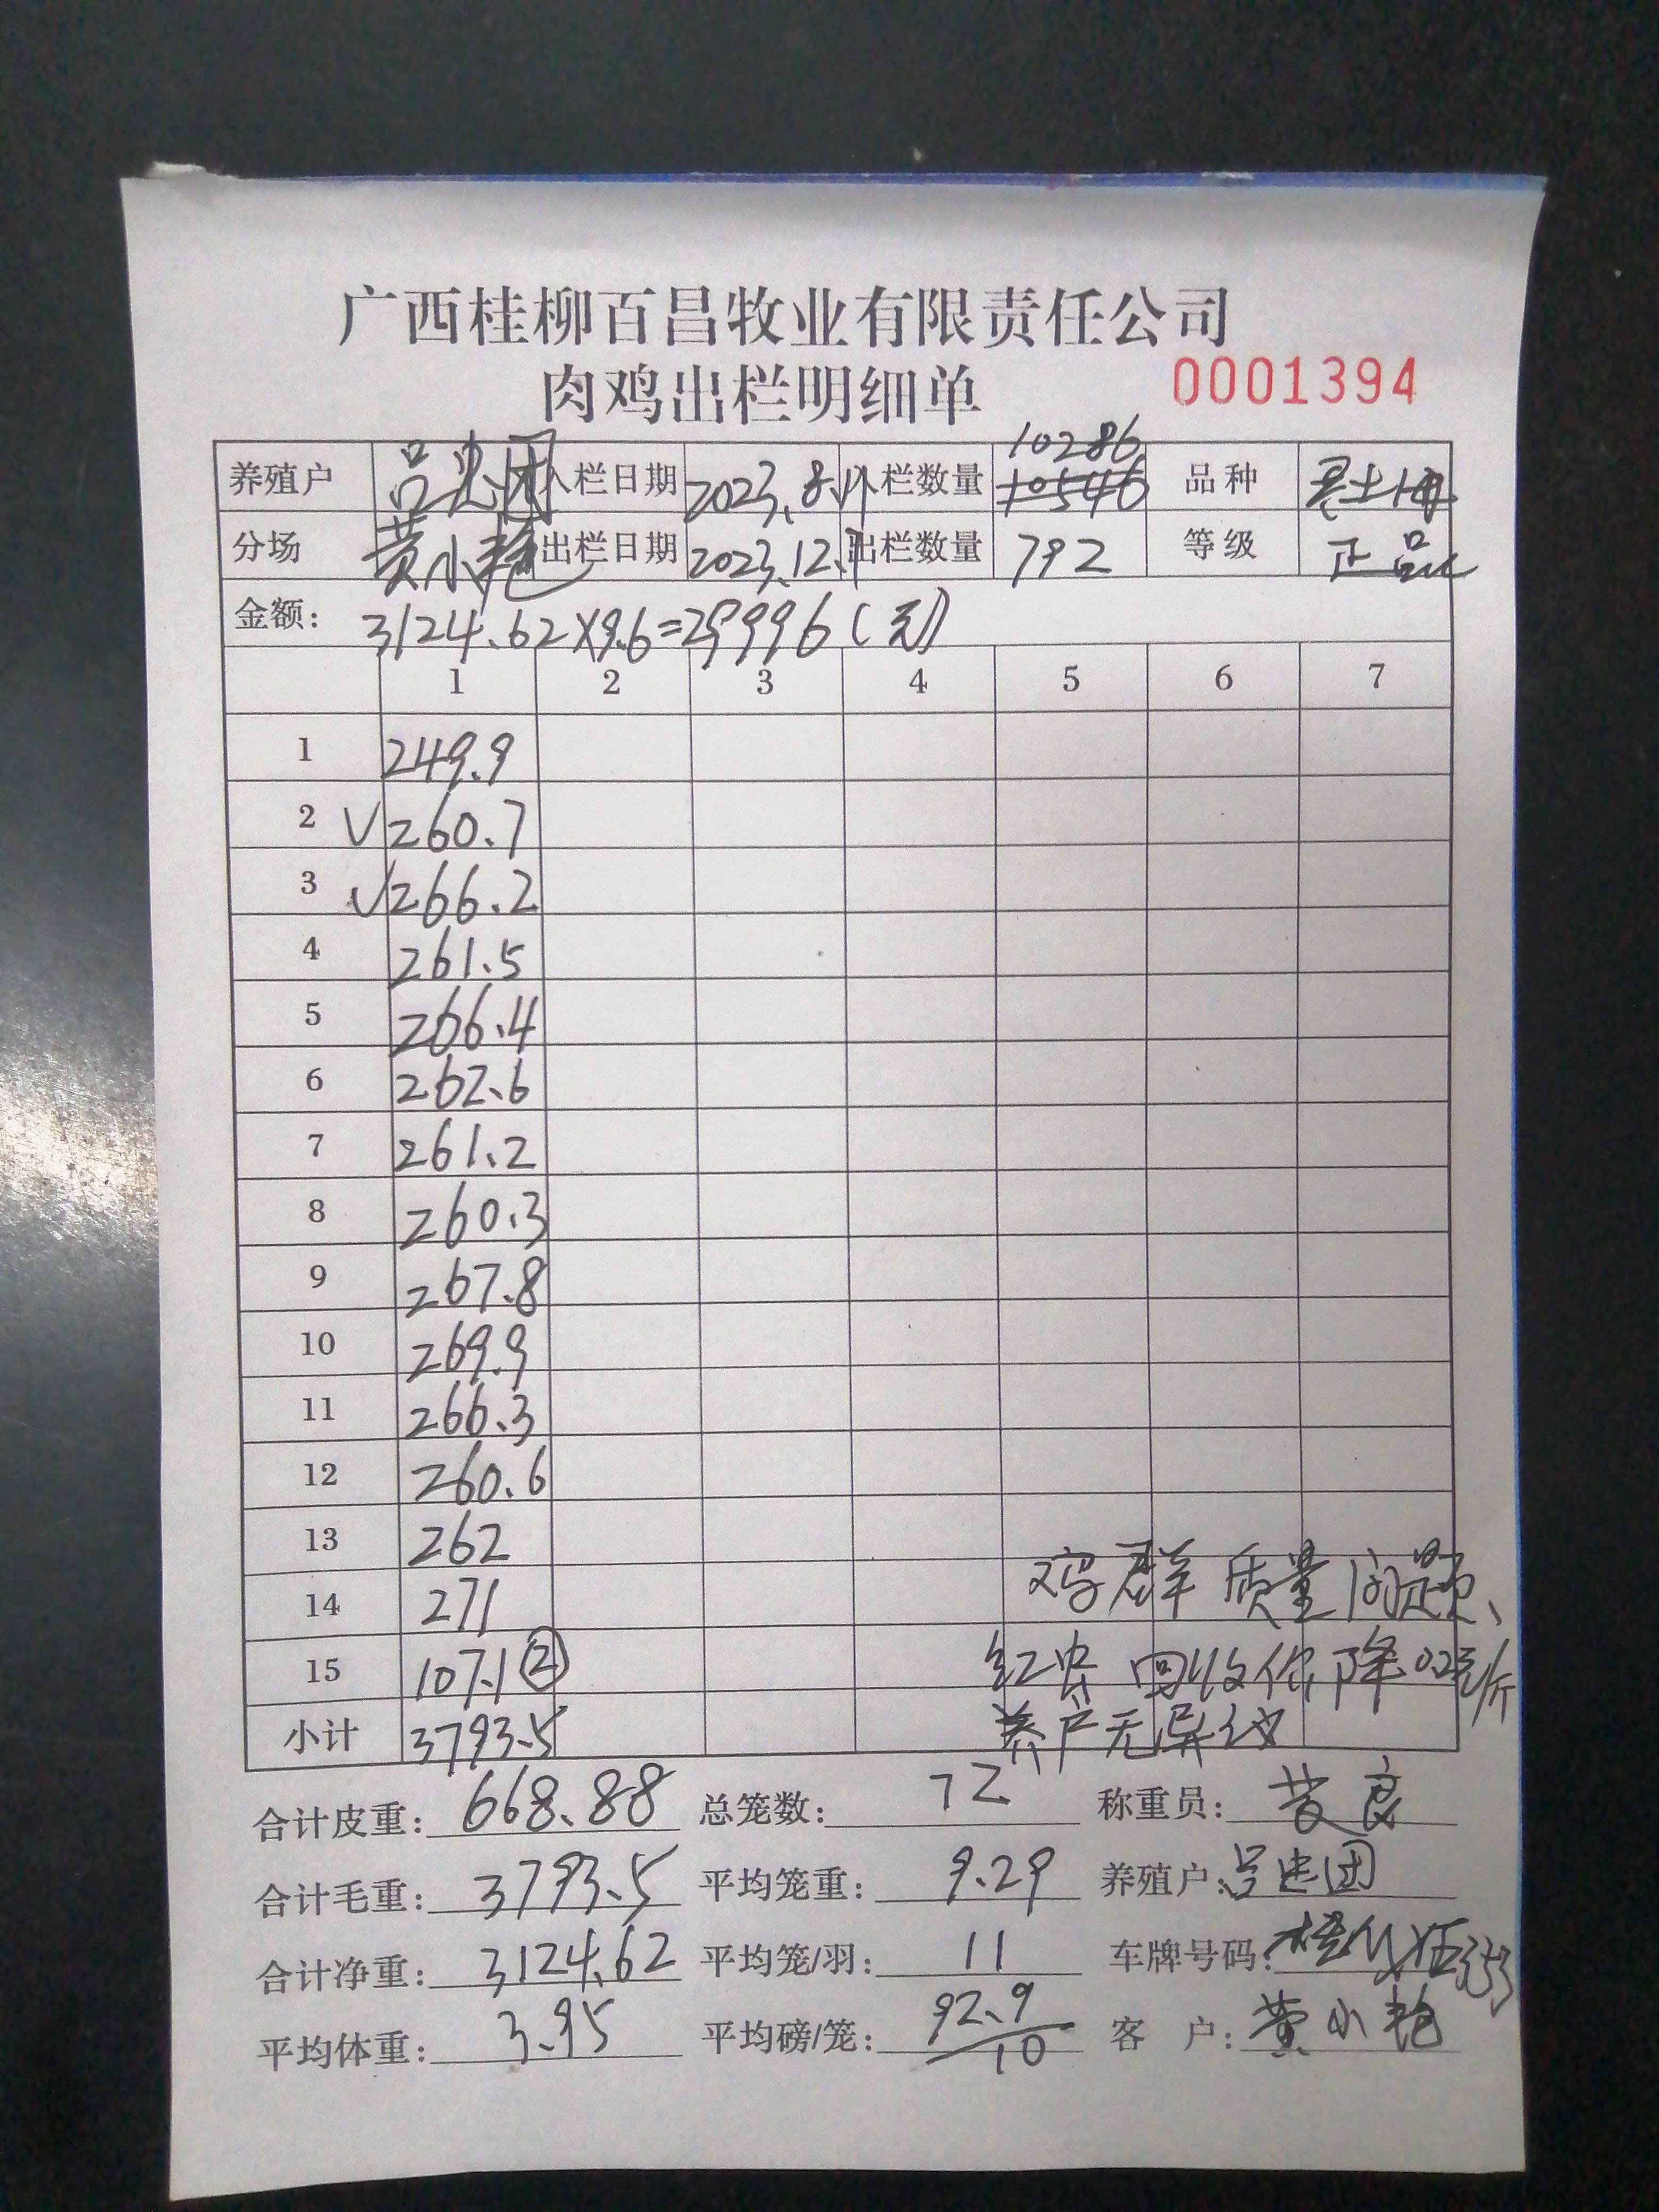 广西桂柳百昌牧业有限责任公司
肉鸡出栏明细单 0001394
10286
养殖户 吕忠团 入栏日期 2023.8. 入栏数量 10546 品种
分场 黄小艳 出栏日期 2023.12. 出栏数量 792 等级 正品
金额: 3124.62×9.6=29996(元)
1 2 3 4 5 6 7
1 249.9
2 √260.7
3 √266.2
4 261.5
5 266.4
6 262.6
7 261.2
8 260.3
9 267.8
10 269.9
11 266.3
12 260.6
13 262
14 271 鸡群质量问题、
15 107.1② 红虫 回收价降0.2元/斤
小计 3793.5 养户无异议
合计皮重: 668.88 总笼数: 72 称重员: 良
合计毛重: 3793.5 平均笼重: 9.29 养殖户: 吕忠团
合计净重: 3124.62 平均笼/羽: 11 车牌号码: 桂
平均体重: 3.95 平均磅/笼: 92.9/10 客 户: 黄小艳